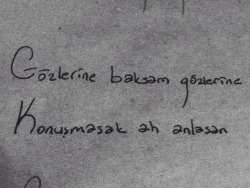 Gözlerine baksam gözlerine
Konuşmasak ah anlasan